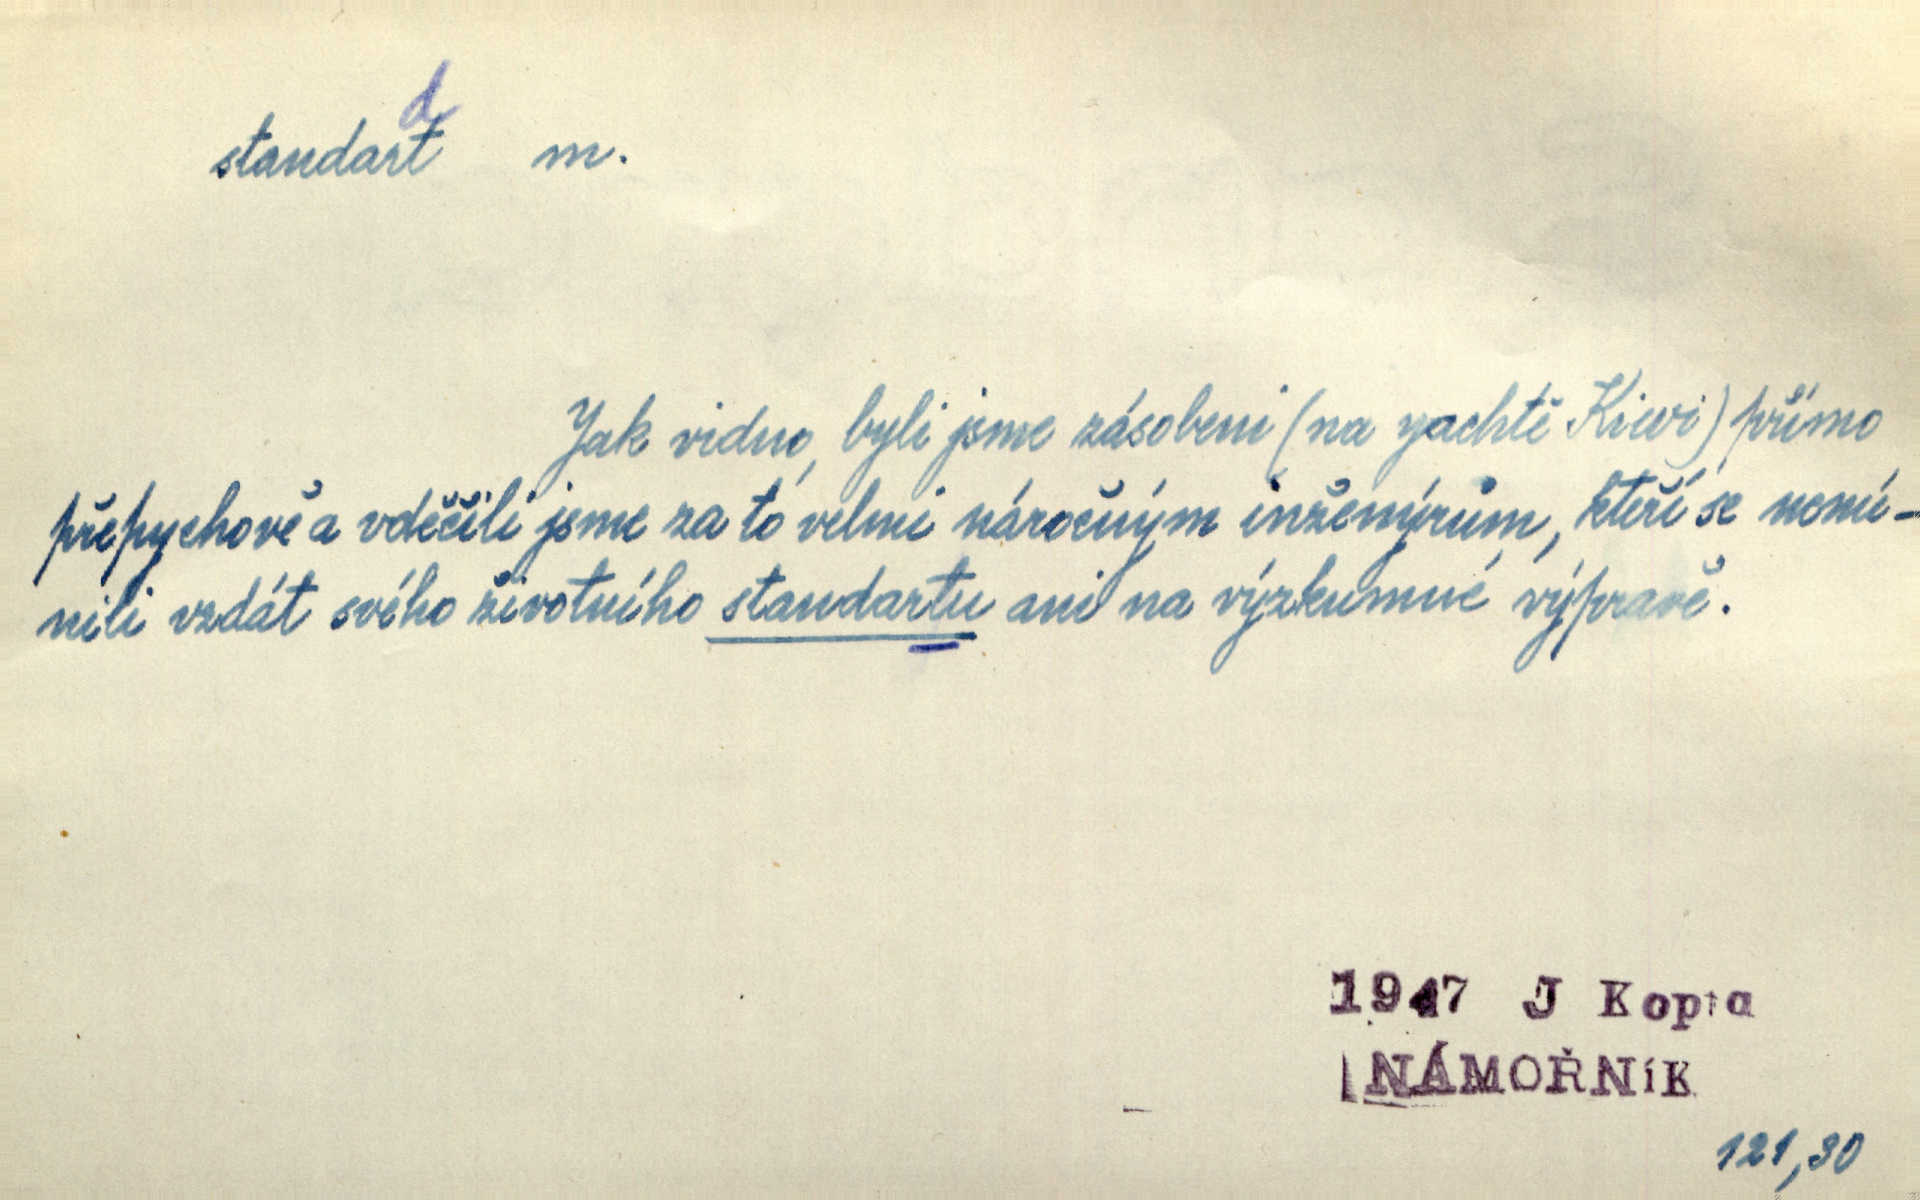 d
standart m.
Jak vidno, byli jsme zásobeni (na yachtě Kiwi) přímo
přepychově a vděčili jsme za to velmi náročným inženýrům, kteří se nemí-
nili vzdát svého životního standartu ani na výzkumné výpravě.
1947 J Kopta
NÁMOŘNíK
121,30